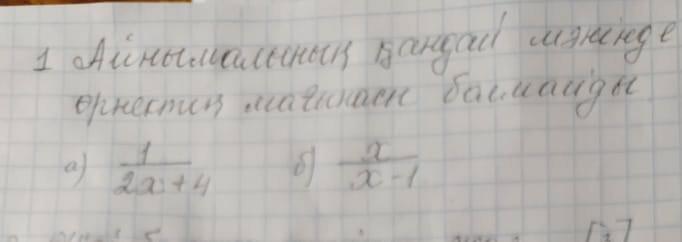 1 Айнымалының қандай мәнінде
өрнектің мағынасы болмайды
а) 1/(2x+4) б) x/(x-1)